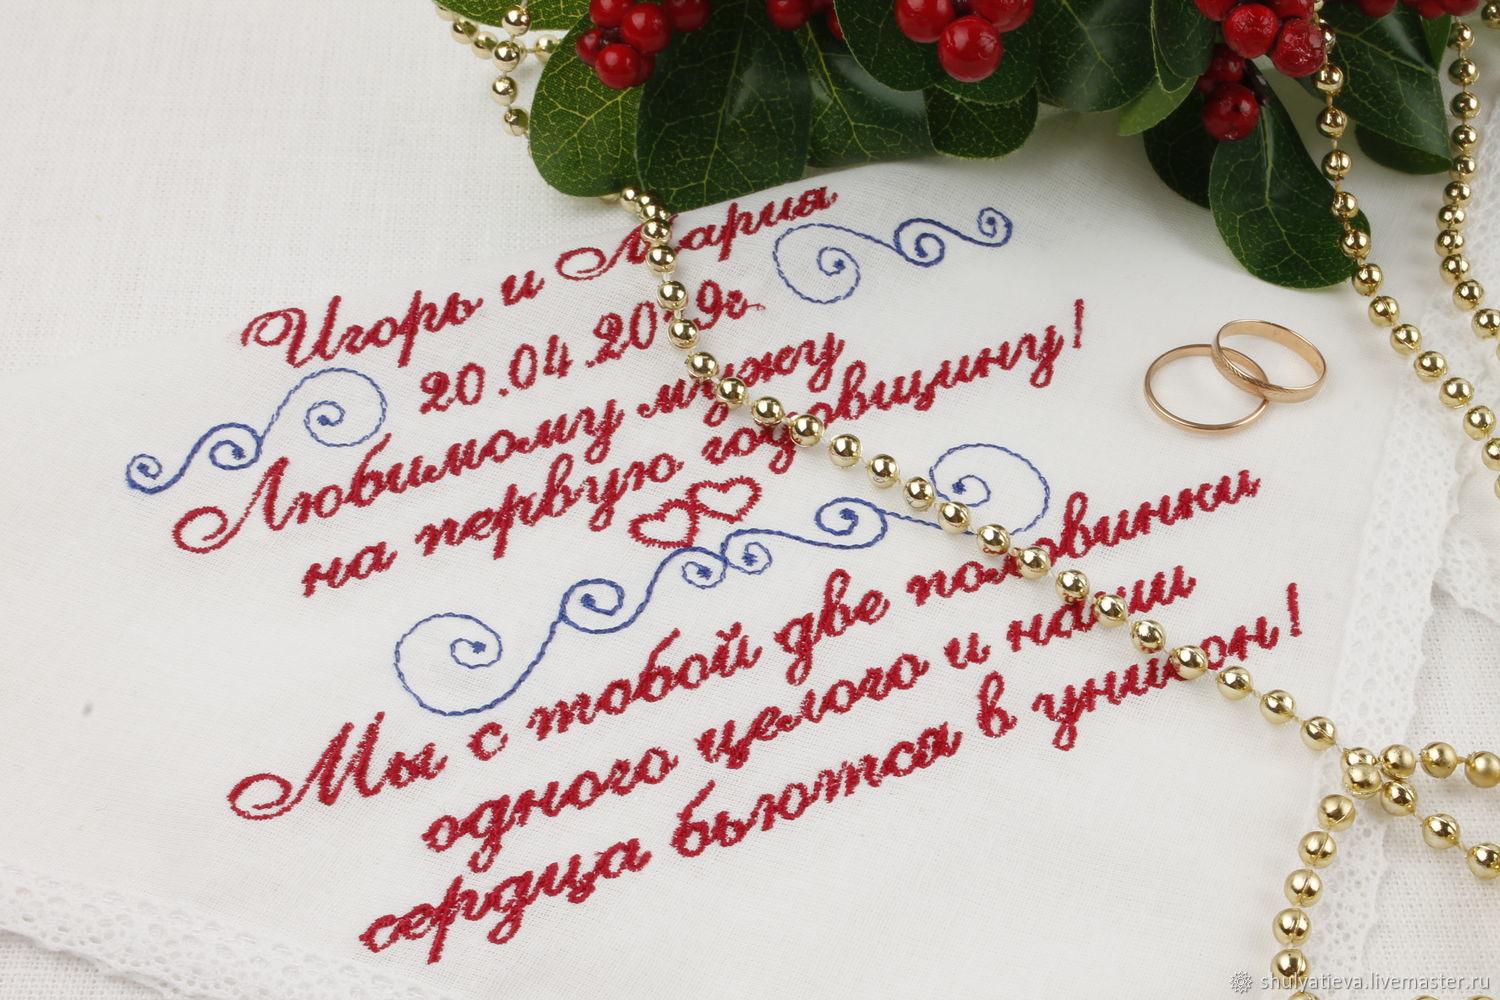 Игорь и Мария
20.04.2019г.
Любимому мужу
на первую годовщину!
Мы с тобой две половинки
одного целого и наши
сердца бьются в унисон!
shulyatieva.livemaster.ru